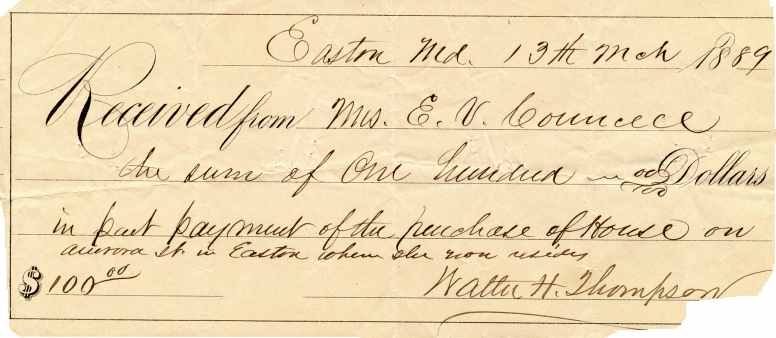 Easton Md. 13th Mch 1889
Received from Mrs. E. V. Councell
the sum of One hundred 00/100 Dollars
in part payment of the purchase of House on
aurora St. in Easton where she now resides
$100 00
Walter H. Thompson